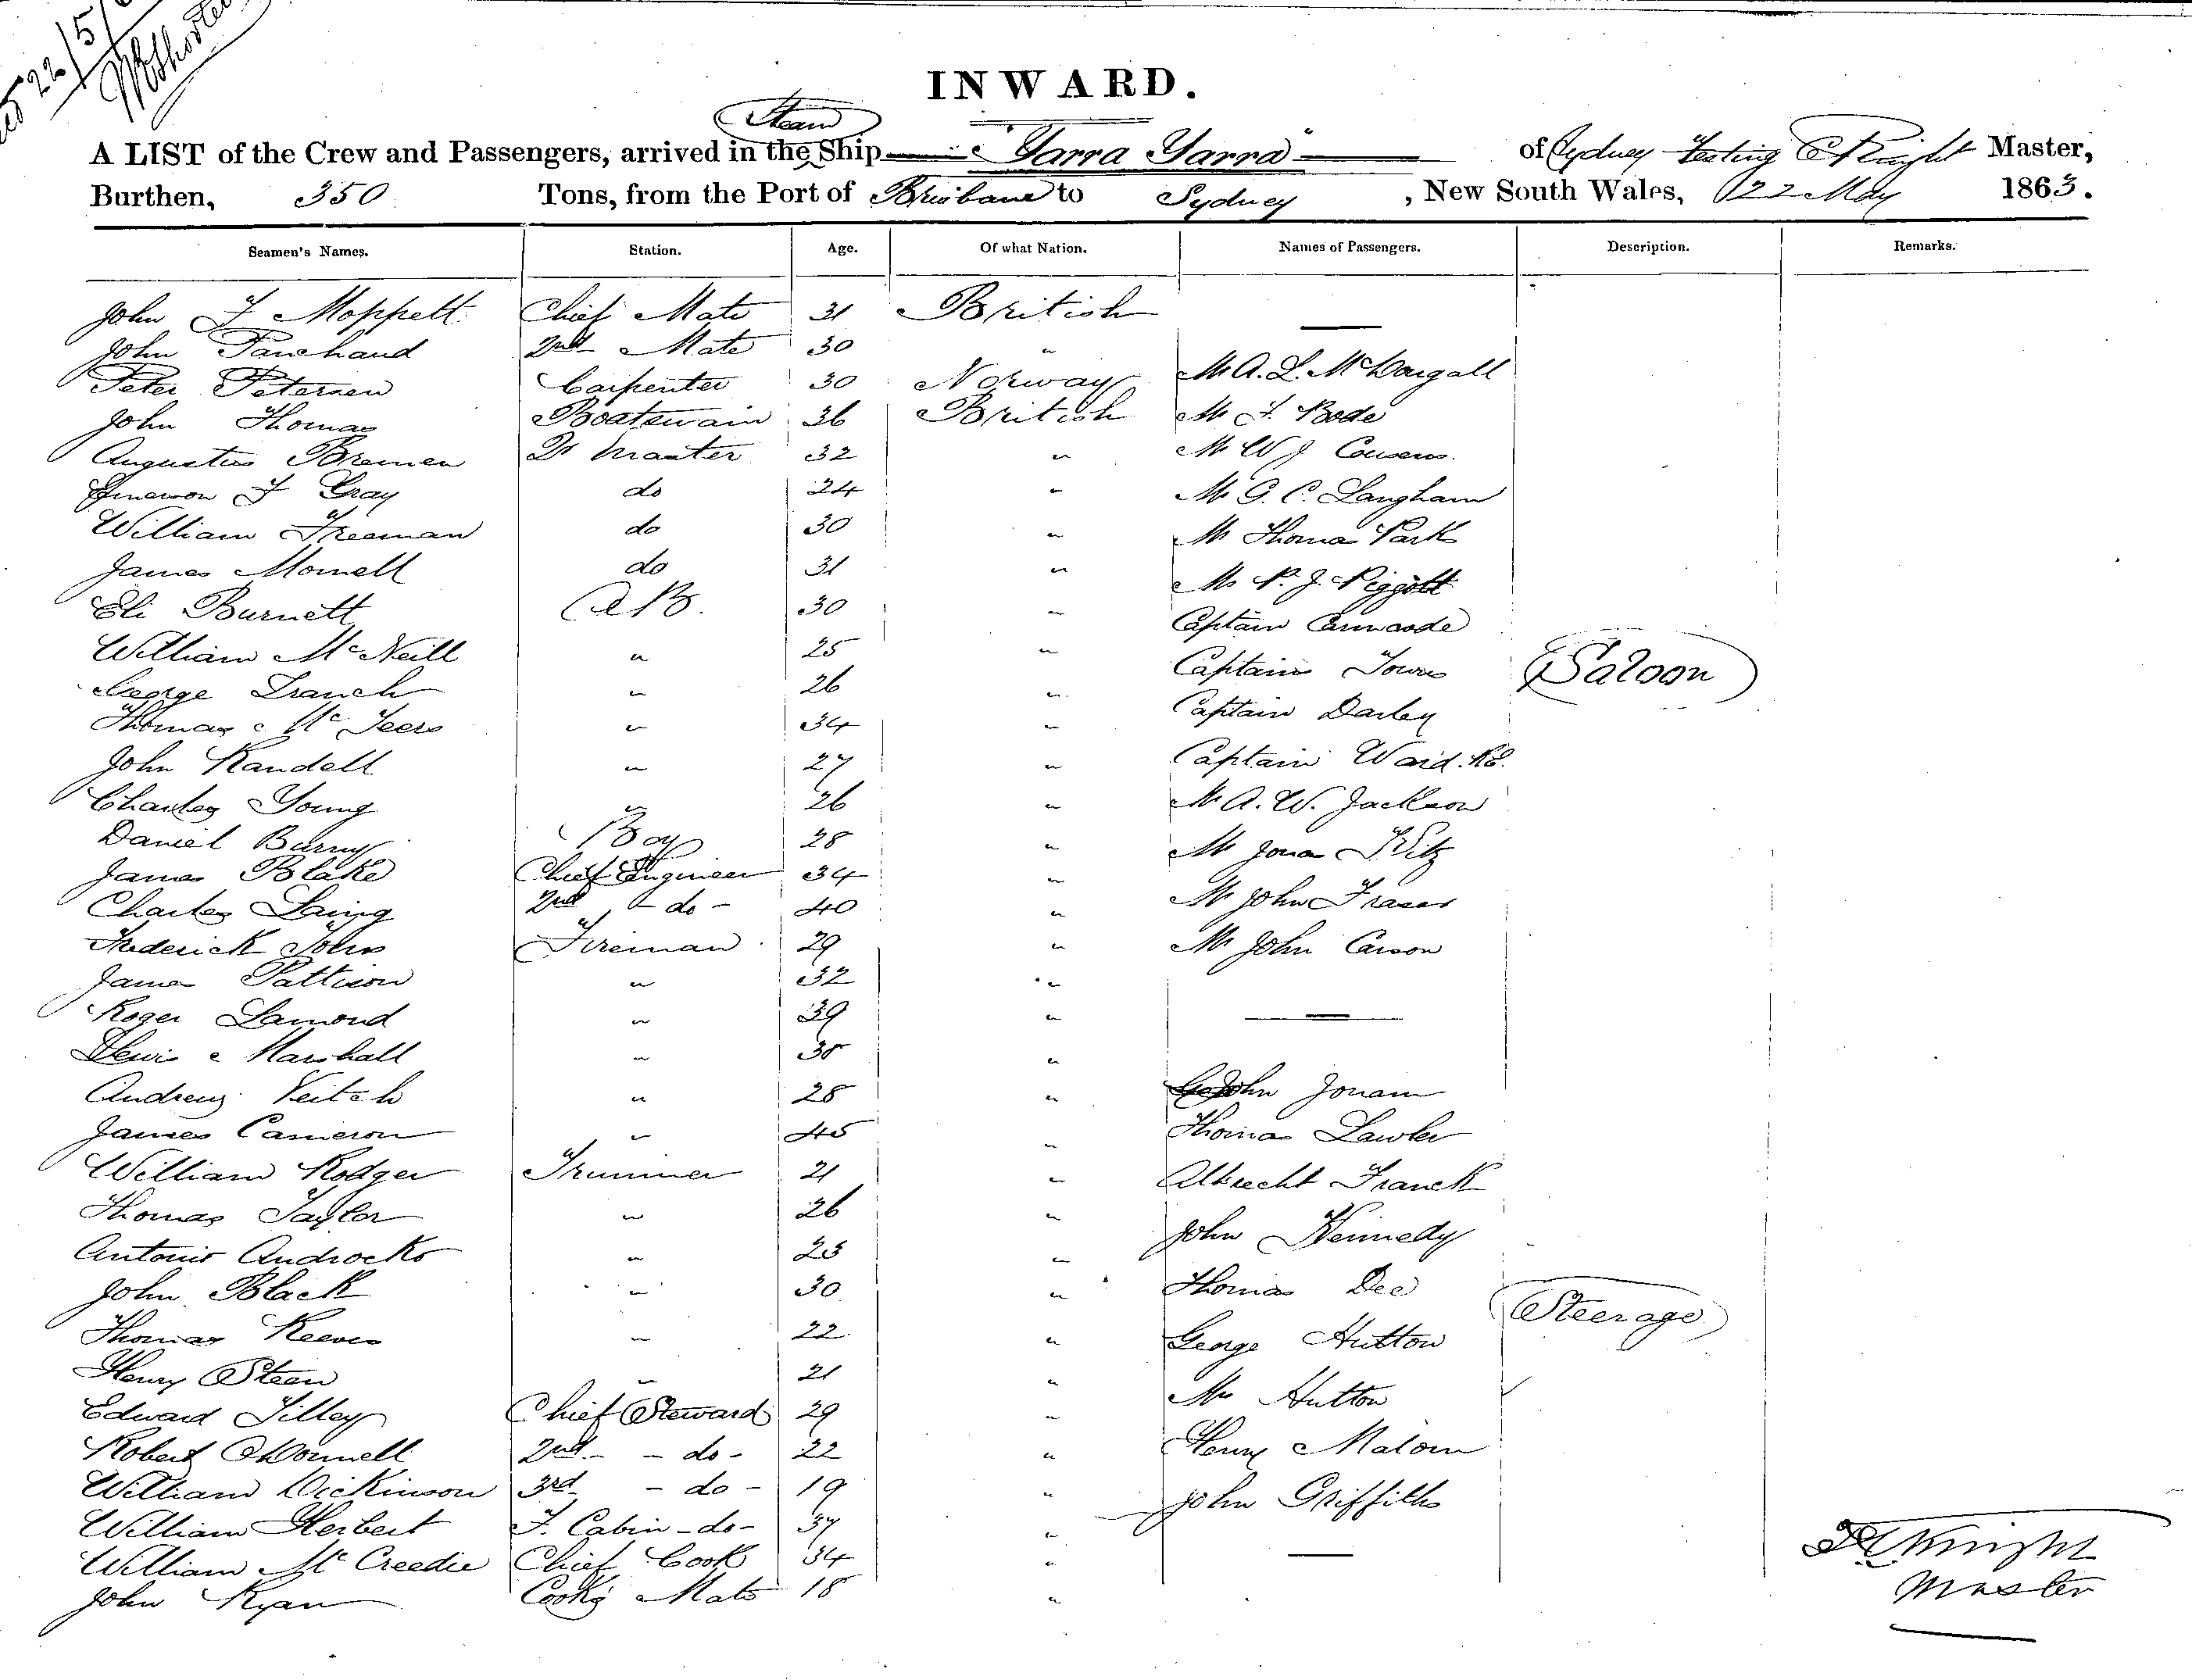 22/5/
INWARD.
Steam
A LIST of the Crew and Passengers, arrived in the Ship "Yarra Yarra" of Sydney Knight Master,
Burthen, 350 Tons, from the Port of Brisbane to Sydney, New South Wales, 22 May 1863.
Seamen's Names. Station. Age. Of what Nation. Names of Passengers. Description. Remarks.
John F Moppett Chief Mate 31 British
John 2nd Mate 30 "
Peter Petersen Carpenter 30 Norway Mr A. L. McDougall
John Thomas Boatswain 36 British Mr F. Bode
Augustus Bremen Qr Master 32 " Mr W J Cousens
F Gray do 24 " Mr G. C. Langham
William Freeman do 30 " Mr Thomas Park
James do 31 " Mr P. J. Piggott
Eli Burnett AB. 30 " Captain
William McNeill " 25 " Captain Towns Saloon
George " 26 " Captain Darley
Thomas " 34 "
John Randell " 27 " Captain Ward. RE.
Charles Young " 26 " Mr A. W. Jackson
Daniel Boy 28 " Mr
James Blake Chief Engineer 34 "
Charles Laing 2nd - do - 40 " Mr John Fraser
Frederick John Fireman 29 " Mr John Carson
James Pattison " 32 "
Roger Lamond " 39 "
Lewis Marshall " "
Andrew Veitch " 28 " John
James Cameron " 45 " Thomas Lawler
William Rodger Trimmer 21 " Albrecht Franck
Thomas Taylor " 26 " John Kennedy
Antonio " 23 "
John Black " 30 " Thomas Dee Steerage
Thomas Reeves " 22 " George Hutton
Henry Steen " 21 "
Edward Tilley Chief Steward 29 " Mrs Hutton
Robert O'Donnell 2nd - do - 22 " Henry
William Dickinson 3rd - do - 19 " John Griffiths
William Herbert F. Cabin - do - 37 "
William McCreedie Chief Cook 34 " Knight
John Ryan Cooks Mate 18 " Master